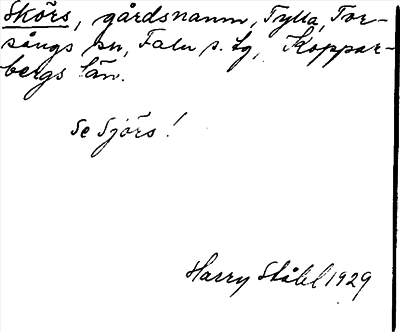 Skörs, gårdsnamn, Tylla, Tor-
sångs sn, Falu s. lg, Koppar-
bergs län.
Se Sjörs!
Harry Ståhl 1929